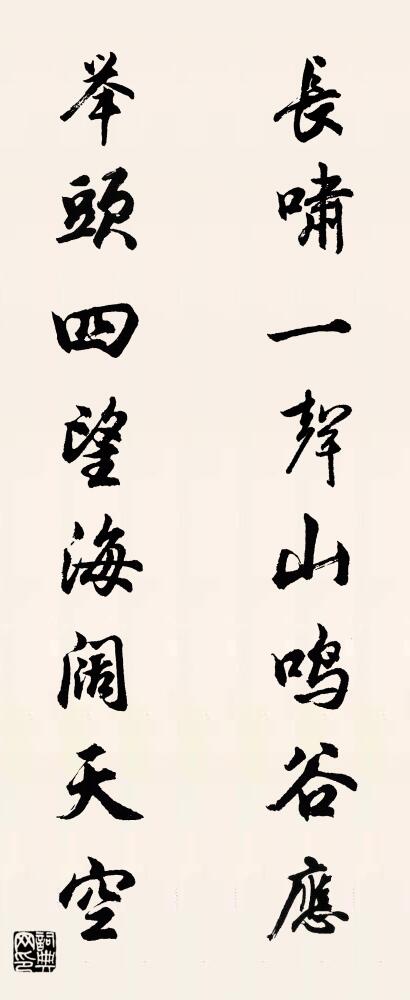 長嘯一聲山鳴谷應
举頭四望海阔天空
詞典
网印